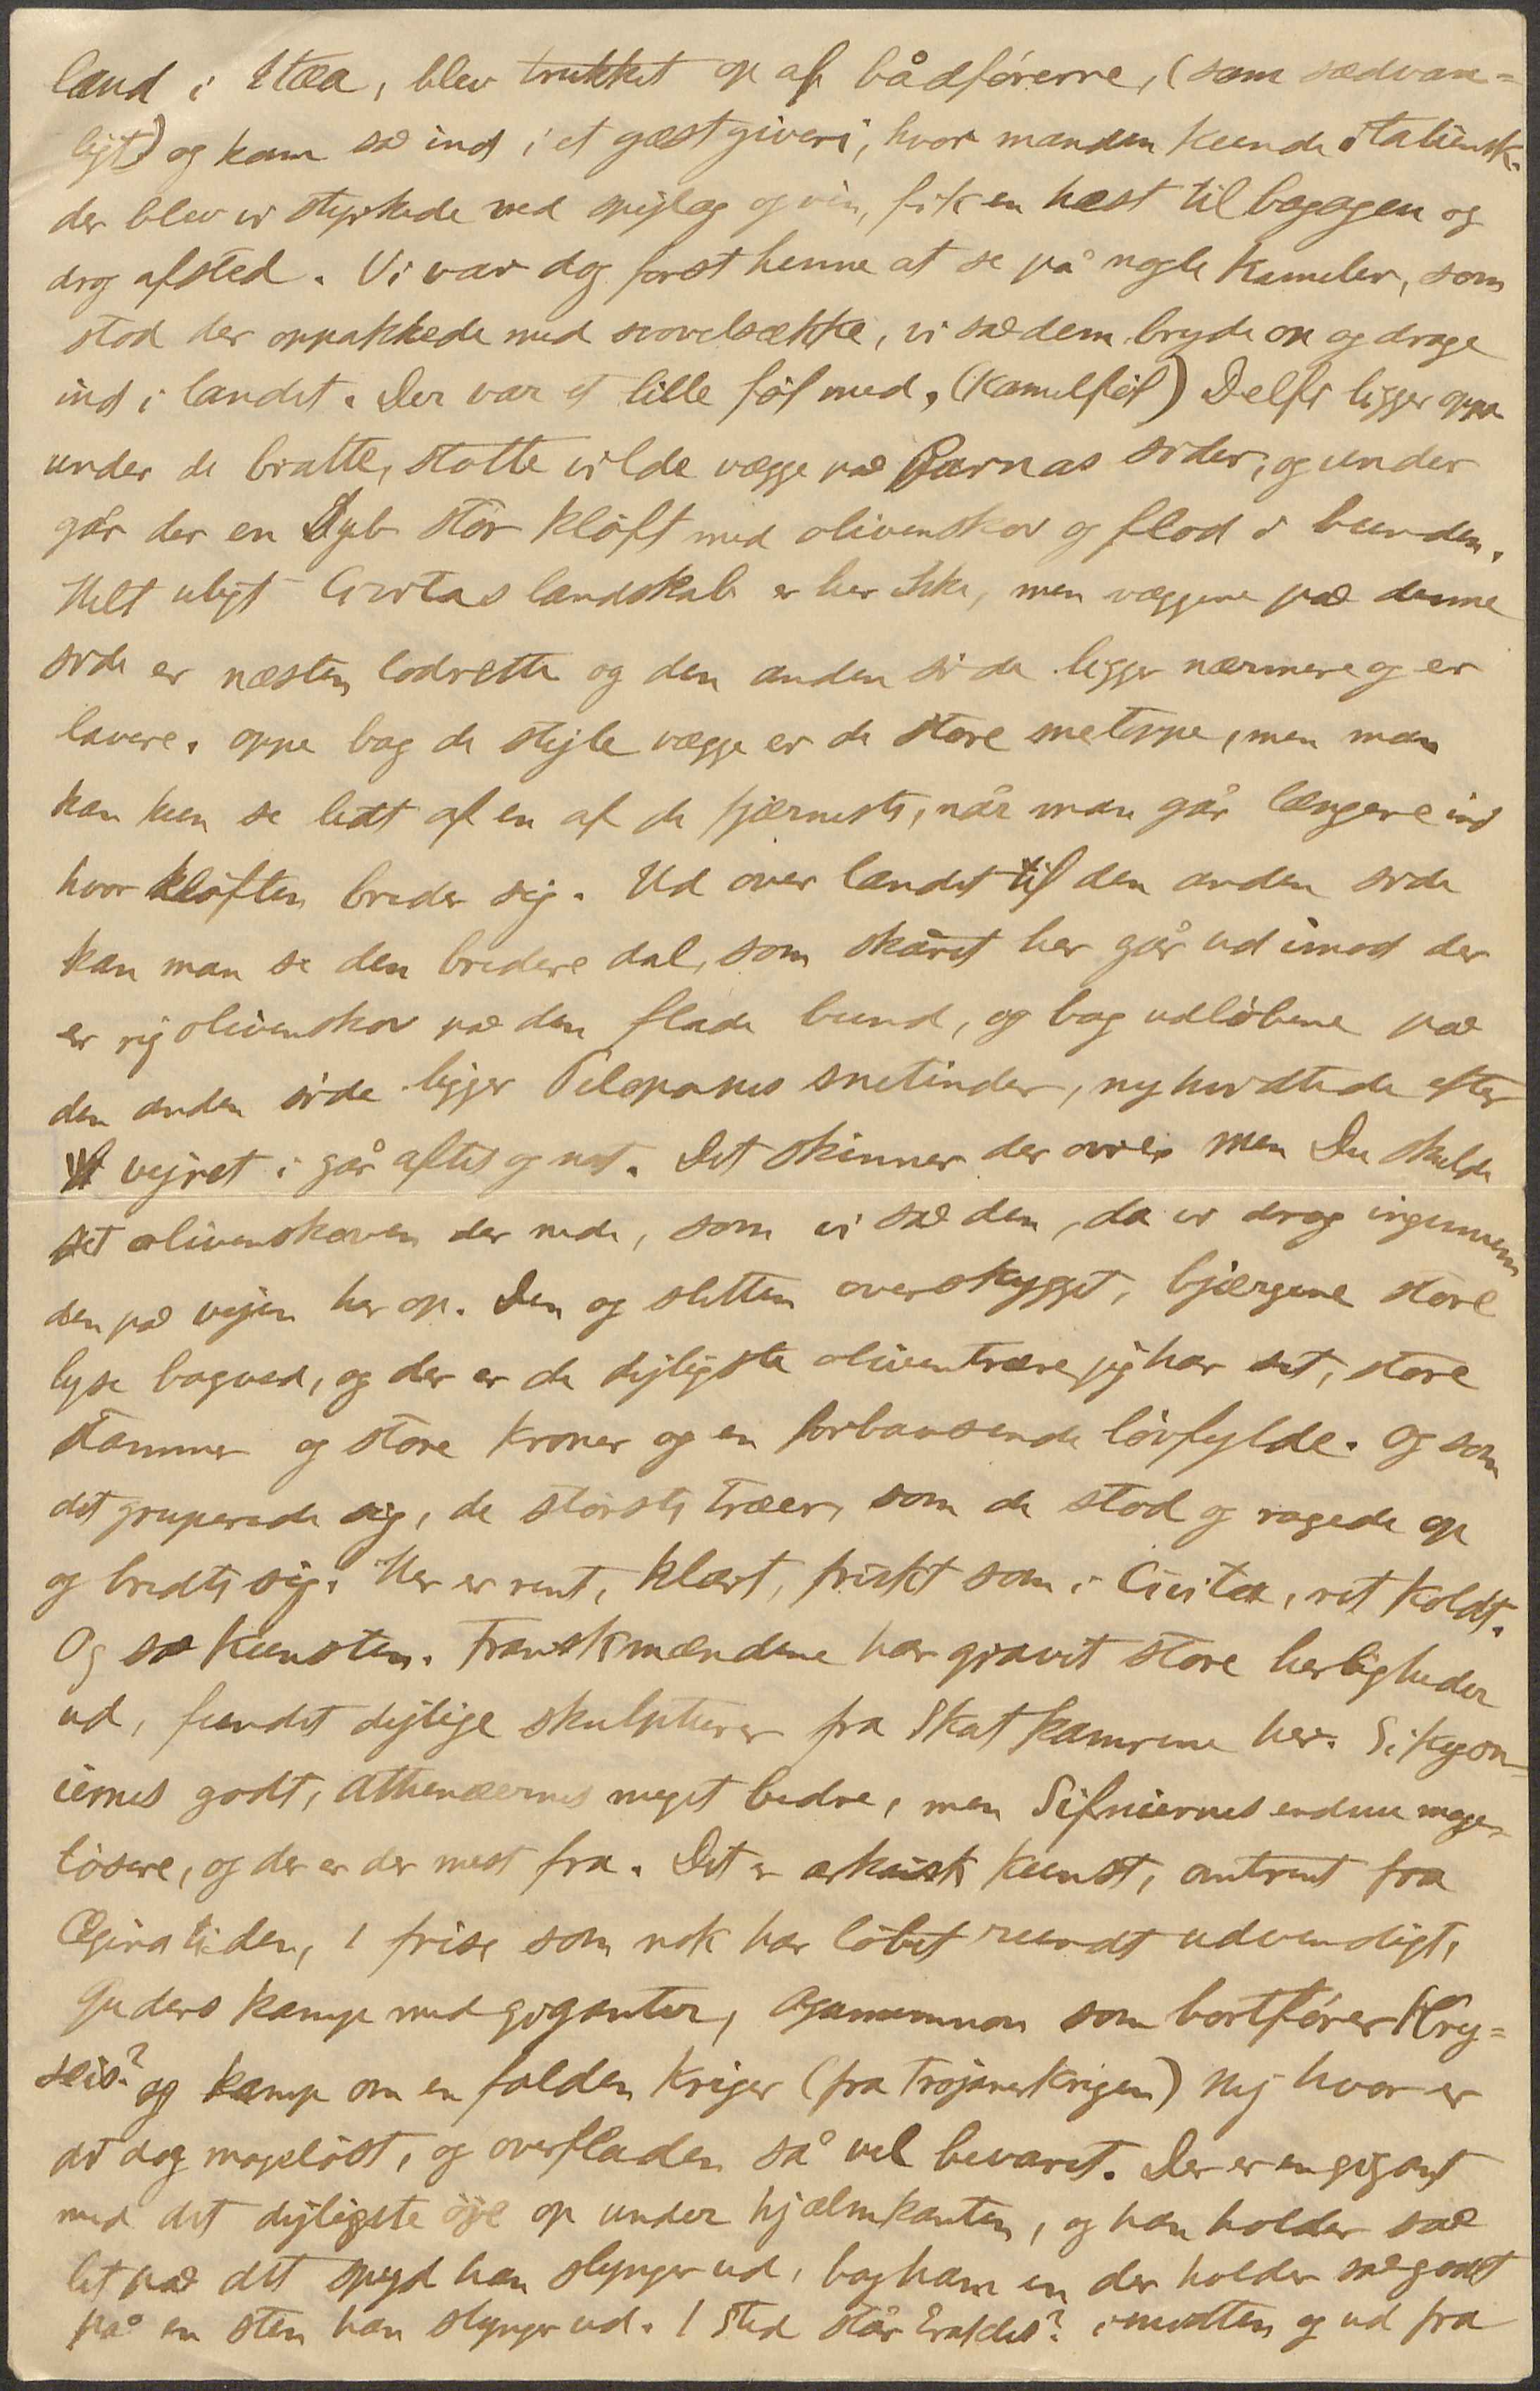 land i Itæa, blev trukket op af bådførerne, (som sædvan=
ligt) og kom så ind i et gæstgiveri, hvor manden kunde italiensk.
der blev vi styrkede med spejlæg og vin, fik en hæst til bagagen og
drog afsted. Vi var dog først henne at se på nogle kameler, som
stod der oppakkede med svovelsække, vi så dem bryde op og drage
ind i landet. Der var et lille føl med, (kamelføl) Delfi ligger oppe
under de bratte, flotte vilde vægge på Parnas sider, og under
går der en Dyb stor kløft med olivenskov og flod i bunden.
Helt uligt Civitas landskab er her ikke, men væggene på denne
side er næsten lodrette og den anden side ligger nærmere og er
lavere. oppe bag de stejle vægge er de store snetoppe, men man
kan kun se lidt af en af de fjærneste, når man går længere ind
hvor kløften breder sig. Ud over landet til den anden side
kan man se den bredere dal, som skåret her går ud imod der
er rig olivenskov på den flade bund, og bag udløbene på
den anden side ligger Pelopones snetinder, ny hvidtede efter
vejret i går aftes og nat. Det skinner der ovre. Men Du skulde
set olivenskoven der nede, som vi så den, da vi drog ingennem
den på vejen her op. Den og sletten overskygget, bjærgene store
lyse bagved, og der er de dejligste oliventræer jeg har set, store
stammer og store kroner og en forbausende løvfylde. og som
det gruperede sig, de største træer, som de stod og ragede op
og bredte sig. Her er rent, klart, friskt som i Civita, ret koldt.
Og så kunsten. Franskmændene har gravet store herligheder
ud, fundet dejlige skulpturer fra Skatkamrene her. Sikyon=
iernes godt, Athenæernes meget bedre, men Sifniernes endnu mage=
løsere, og der er der mest fra. Det er arkaisk kunst, omtrent fra
Æginatiden, 1 frise som nok har løbet rundt udvendigt,
Guders kamp med giganter, Agamemnon som bortfører Kry=
seis? og kamp om en falden kriger (fra Trojanerkrigen) nej hvor er
det dog mageløst, og overfladen så vel bevaret. Der er en gigant
med det dejligste øje op under hjælmkanten, og han holder så
let på det spyd han slynger ud, bag ham en der holder så godt
på en sten han slynger ud. 1 sted står i midten og ud fra